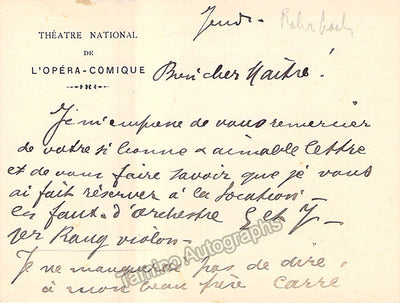 Jeudi
THÉATRE NATIONAL
DE
L'OPÉRA-COMIQUE
Bien cher Maître!
Je m'empresse de vous remercier
de votre si bonne & aimable lettre
et de vous faire savoir que je vous
ai fait réserver à la location
les faut. d'orchestre
1er Rang violon
Je ne manquerai pas de dire
à mon beau père Carré
Tamino Autographs